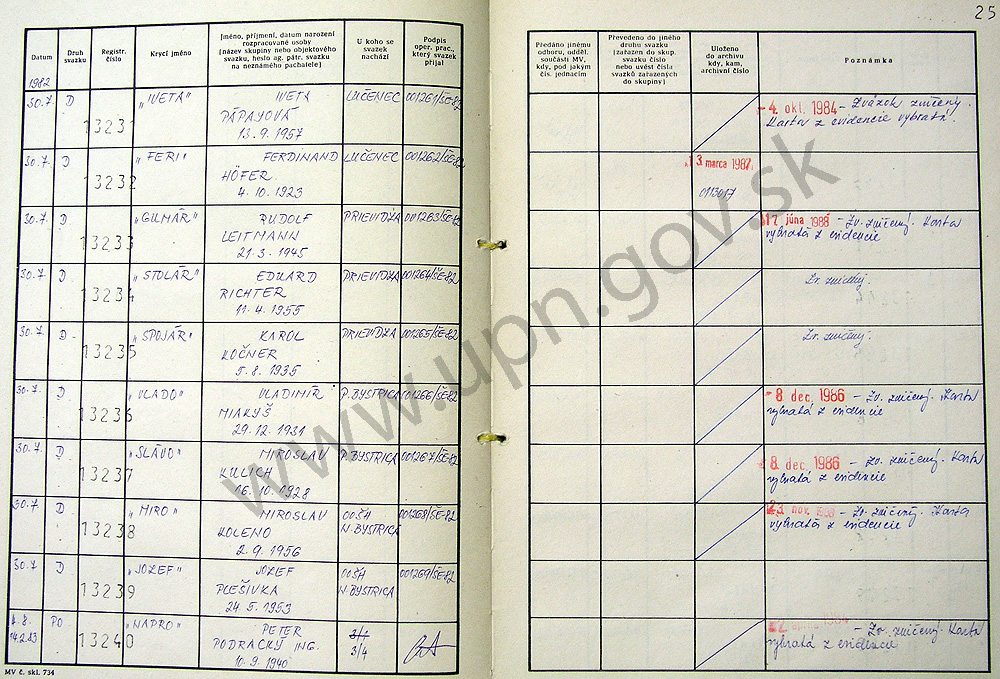 25
Datum
Druh svazku
Registr. číslo
Krycí jméno
Jméno, příjmení, datum narození
rozpracované osoby
(název skupiny nebo objektového
svazku, heslo ag. pátr. svazku
na neznámého pachatele)
U koho se
svazek
nachází
Podpis
oper. prac.,
který svazek
přijal
Předáno jinému
odboru, odděl.
součásti MV,
kdy, pod jakým
čís. jednacím
Převedeno do jiného
druhu svazku
(zařazen do skup.
svazku číslo
nebo uvést čísla
svazků zařazených
do skupiny)
Uloženo
do archivu
kdy, kam,
archivní číslo
Poznámka
1982
30.7. D 13231 "IVETA" IVETA LUČENEC 001261/ŠE-82
PÁPAYOVÁ
13.9.1957
- 4. okt. 1984 - Zväzok zničený.
Karta z evidencie vybratá.
30.7. D 13232 "FERI" FERDINAND LUČENEC 001262/ŠE-82
HÖFER
4.10.1923
13. marca 1987
0113017
30.7. D 13233 "GUMÁR" RUDOLF PRIEVIDZA 001263/ŠE-82
LEITMANN
21.3.1945
17. júna 1988 - Zv. zničený. Karta
vybratá z evidencie
30.7. D 13234 "STOLÁR" EDUARD PRIEVIDZA 001264/ŠE-82
RICHTER
11.4.1955
Zv. zničený.
30.7. D 13235 "SPOJÁR" KAROL PRIEVIDZA 001265/ŠE-82
KOČNER
5.8.1935
Zv. zničený.
30.7. D 13236 "VLADO" VLADIMÍR P. BYSTRICA 001266/ŠE-82
29.12.1931
- 8. dec. 1986 - Zv. zničený. Karta
vybratá z evidencie
30.7. D 13237 "SLÁVO" MIROSLAV P. BYSTRICA 001267/ŠE-82
KULICH
16.10.1928
- 8. dec. 1986 - Zv. zničený. Karta
vybratá z evidencie
30.7. D 13238 "MIRO" MIROSLAV OOŠH 001268/ŠE-82
KOLENO N. BYSTRICA
2.9.1956
23. nov. - Zv. zničený. Karta
vybratá z evidencie
30.7. D 13239 "JOZEF" JOZEF OOŠH 001269/ŠE-82
PLEŠIVKA N. BYSTRICA
24.5.1953
14.2.83 PO 13240 "NAPRO" PETER 3/1
PODRACKÝ ING. 3/4
10.9.1940
- Zv. zničený. Karta
vybratá z evidencie
MV č. skl. 734
www.upn.gov.sk